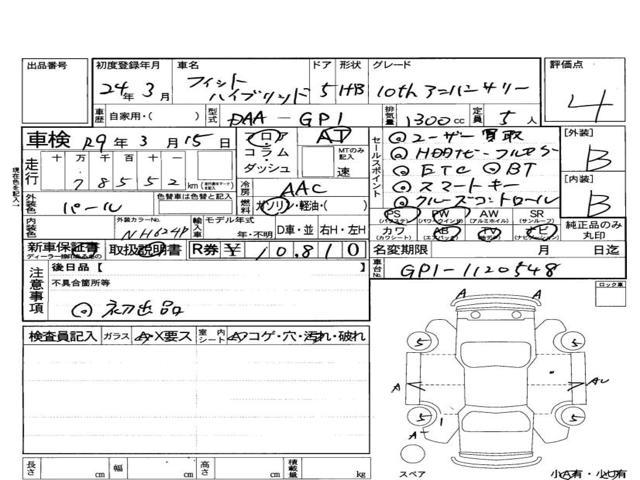 出品番号 初度登録年月 車名 ドア 形状 グレード 評価点
24年3月 フィットハイブリッド 5 HB 10th アニバーサリー 4
車歴 自家用・( ) 型式 DAA-GP1 排気量 1300cc 定員 5人
車検 29年3月15日 フロア・コラム・ダッシュ AT
MTのみ記入 速
走行 十 万 千 百 十 一
78552 km
冷房 AAC
燃料 ガソリン・軽油・( )
セールスポイント
◎ユーザー買取
◎HDDナビ-フルセグ
◎ETC ◎BT
◎スマートキー
◎クルーズコントロール
[外装] B
[内装] B
現在色を記入→
外装色 パール 色替車は色替と記入
内装色 外装カラーNo. NH624P
輸入車 モデル年式 年・不明 D車・並 右H・左H
PS PW AW SR
(パワステ) (パワーウィンド) (アルミホイル) (サンルーフ)
カワ AB TV ナビ
(カワシート) (エアバック) (テレビ) (ナビゲーション)
純正品のみ丸印
新車保証書 取扱説明書 R券 ¥10,810
ディーラー捺印あるもの
名変期限 月 日迄
車台No. GP1-1120548
注意事項 後日品【 】
不具合箇所等
◎初出品
ロック車
検査員記入 ガラス A・X要ス 室内シート A・コゲ・穴・汚れ・破れ
A A
5 5
A AU
5 5
A- 1
スペア 小A有・小U有
長さ cm 幅 cm 高さ cm 積載量 kg